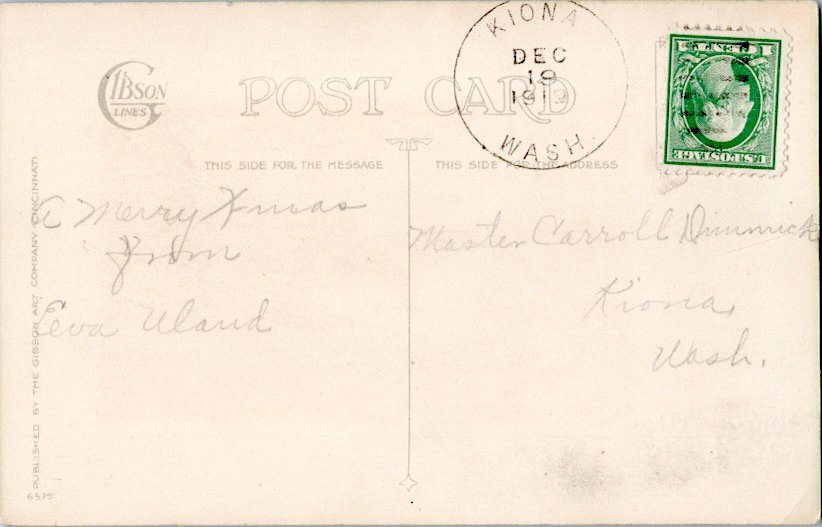 GIBSON
LINES
POST CARD
KIONA
DEC
19
1913
WASH.
1 CENT 1
U.S. POSTAGE
THIS SIDE FOR THE MESSAGE
THIS SIDE FOR THE ADDRESS
A Merry Xmas
from
Eva Uland
Master Carroll Dimmick
Kiona,
Wash.
PUBLISHED BY THE GIBSON ART COMPANY CINCINNATI
6575